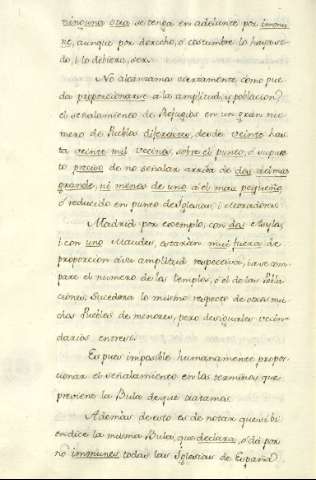 ninguna otra se tenga en adelante por immu-
ne, aunque por derecho, ò costumbre lo haya si-
do, ì lo debiera, ser.
No alcanzamos ciertamente como pue-
da proporcionarse a la amplitud, y poblacion
el señalamiento de Refugios en un gran nu-
mero de Pueblos diferentes, desde veinte has-
ta veinte mil vecinos, sobre el punto, ò supues-
to preciso de no señalar arriba de dos al mas
grande, ni menos de uno al mas pequeño,
ò reducido en punto de Iglesias, i moradores.
Madrid por exemplo, con dos Asylos,
i con uno Maudes, estarian mui fuera de
proporcion à su amplitud respectiva, i a se am-
pare el numero de los templos, ò el de las Pobla-
ciones. Sucederà lo mismo respecto de otros mu-
chos Pueblos de menores, pero desiguales vecin-
darios entre si.
Es pues imposible humanamente propor-
cionar el señalamiento en los terminos que
previene la Bula de que tratamos.
Ademàs de esto es de notar que ni bi-
en dice la misma Bula, que declara, ò dà por
no immunes todas las Iglesias de España